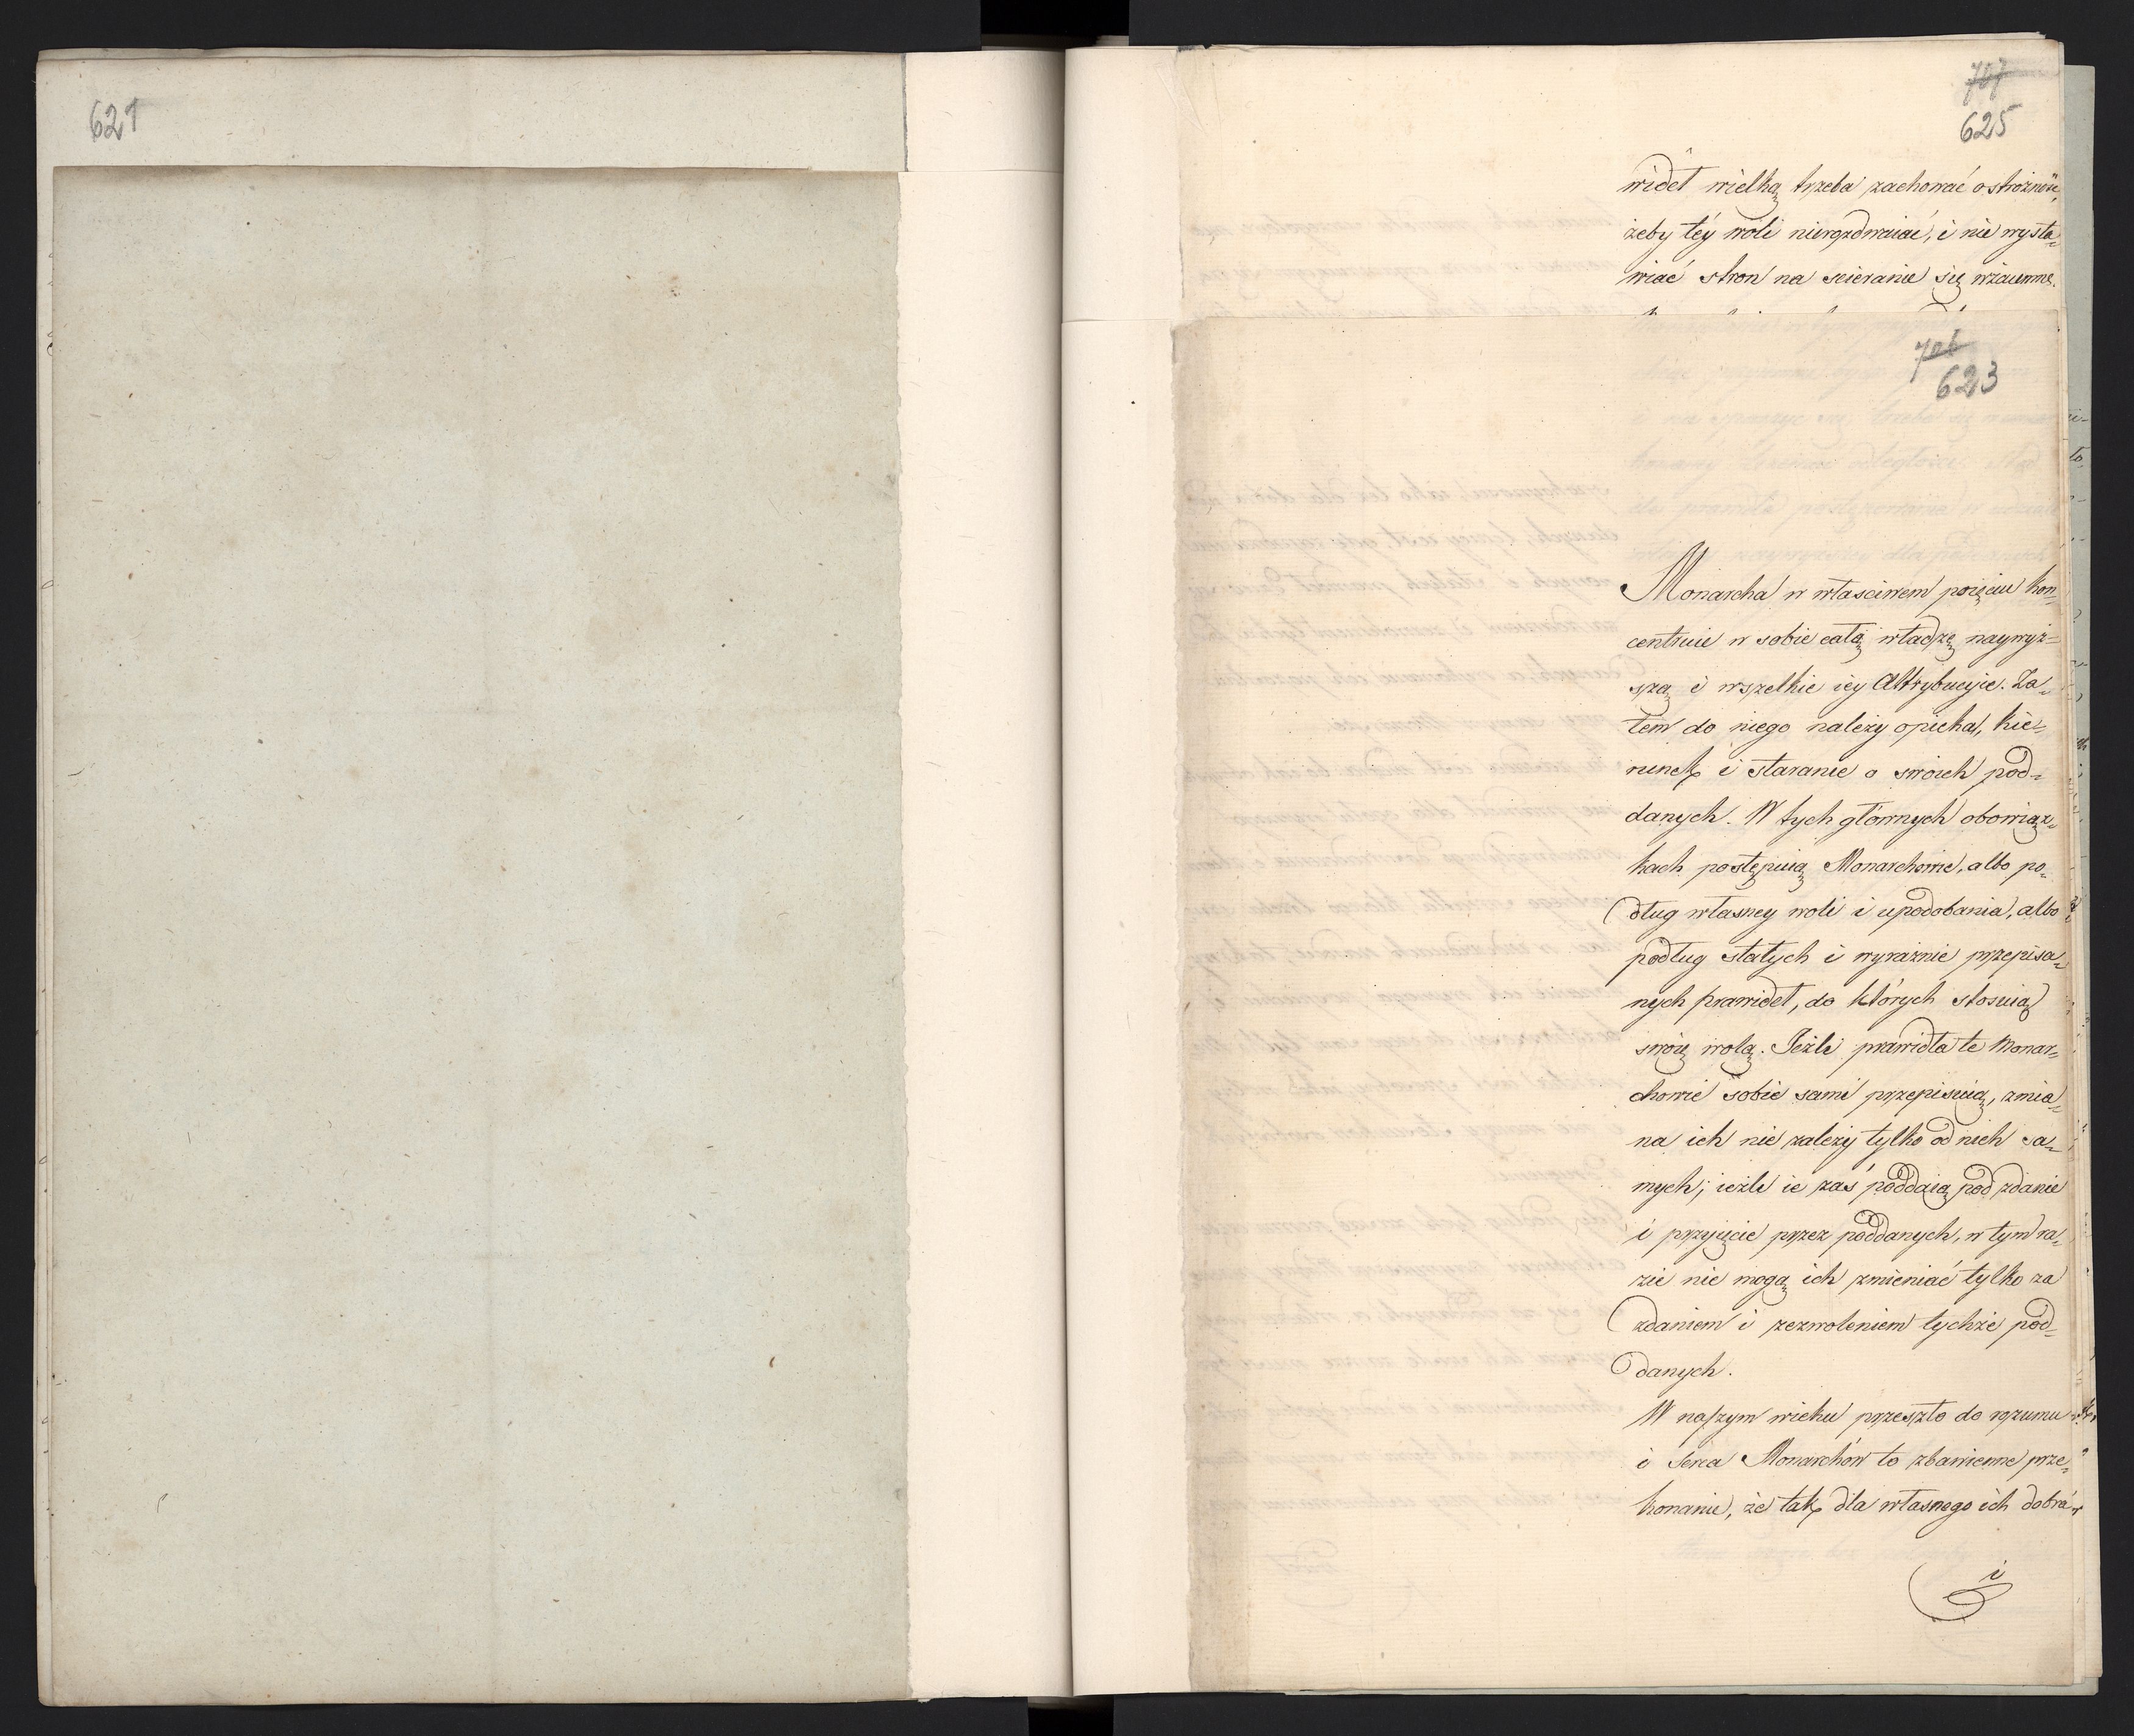 621
707
625
wideł wielką trzeba zachować ostrożność,
żeby téy woli nierozdwaiać, i nie wysta„
wiać stron na scieranie się wzaiemne.
706
623
Monarcha w własciwem poięciu kon„
centruie w sobie całą władzę naywyż„
szą i wszelkie iey Attrybucyie. Za„
tem do niego należy opieka, kie„
runek i staranie o swoich pod„
danych. W tych głównych obowiąz„
kach postępuią Monarchowie, albo po„
dług własney woli i upodobania, albo
podług stałych i wyraźnie przepisa„
nych prawideł, do których stosuią
swoię wolą. Jeżli prawidła te Monar„
chowie sobie sami przepisuią, zmia„
na ich nie zależy tylko od nich sa„
mych; ieżli ie zaś poddaią pod zdanie
i przyięcie przez poddanych, w tym ra„
zie nie mogą ich zmieniać tylko za
zdaniem i zezwoleniem tychże pod„
danych.
W naszym wieku przeszło do rozumu
i Serca Monarchów to zbawienne prze„
konanie, że tak dla własnego ich dobra
i